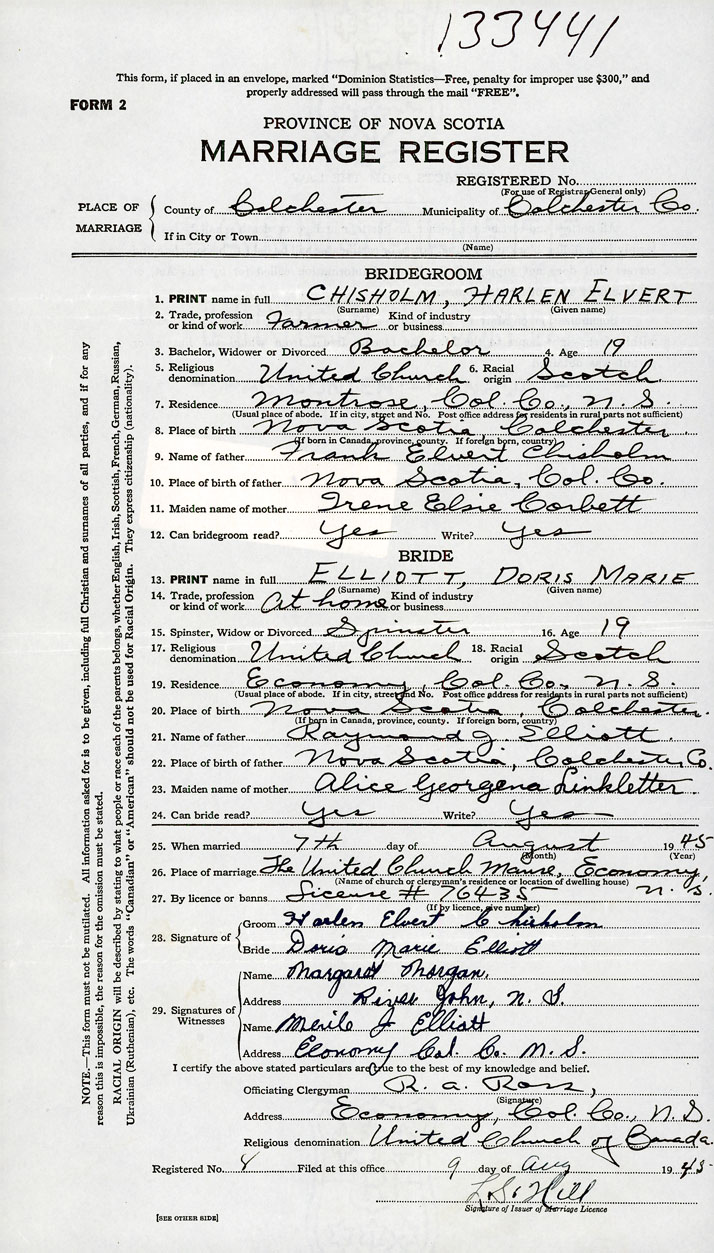 133441
This form, if placed in an envelope, marked "Dominion Statistics—Free, penalty for improper use $300," and
properly addressed will pass through the mail "FREE".
FORM 2
PROVINCE OF NOVA SCOTIA
MARRIAGE REGISTER
REGISTERED No.
(For use of Registrar General only)
PLACE OF MARRIAGE
County of Colchester Municipality of Colchester Co.
If in City or Town
(Name)
BRIDEGROOM
1. PRINT name in full CHISHOLM, HARLEN ELVERT
(Surname) (Given name)
2. Trade, profession or kind of work Farmer Kind of industry or business
3. Bachelor, Widower or Divorced Bachelor 4. Age 19
5. Religious denomination United Church 6. Racial origin Scotch
7. Residence Montrose, Col. Co., N. S.
(Usual place of abode. If in city, street and No. Post office address for residents in rural parts not sufficient)
8. Place of birth Nova Scotia, Colchester
(If born in Canada, province, county. If foreign born, country)
9. Name of father Frank Elvert Chisholm
10. Place of birth of father Nova Scotia, Col. Co.
11. Maiden name of mother Irene Elsie Corbett
12. Can bridegroom read? Yes Write? Yes
BRIDE
13. PRINT name in full ELLIOTT, DORIS MARIE
(Surname) (Given name)
14. Trade, profession or kind of work At home Kind of industry or business
15. Spinster, Widow or Divorced Spinster 16. Age 19
17. Religious denomination United Church 18. Racial origin Scotch
19. Residence Economy, Col. Co., N. S.
(Usual place of abode. If in city, street and No. Post office address for residents in rural parts not sufficient)
20. Place of birth Nova Scotia, Colchester.
(If born in Canada, province, county. If foreign born, country)
21. Name of father Raymond J. Elliott
22. Place of birth of father Nova Scotia, Colchester Co.
23. Maiden name of mother Alice Georgena Linkletter
24. Can bride read? Yes Write? Yes
25. When married 7th day of August 1945
(Month) (Year)
26. Place of marriage The United Church Manse, Economy, N. S.
(Name of church or clergyman's residence or location of dwelling house)
27. By licence or banns License # 76435
(If by licence, give number)
28. Signature of
Groom Harlen Elvert Chisholm
Bride Doris Marie Elliott
29. Signatures of Witnesses
Name Margaret Morgan.
Address River John, N. S.
Name Merile J Elliott
Address Economy Col. Co. N. S.
I certify the above stated particulars are true to the best of my knowledge and belief.
Officiating Clergyman R. A. Ross,
(Signature)
Address Economy, Col. Co., N. S.
Religious denomination United Church of Canada.
Registered No. 8 Filed at this office 9 day of Aug 1945
L. S. Hill
Signature of Issuer of Marriage Licence
[SEE OTHER SIDE]
NOTE.—This form must not be mutilated. All information asked for is to be given, including full Christian and surnames of all parties, and if for any
reason this is impossible, the reason for the omission must be stated.
RACIAL ORIGIN will be described by stating to what people or race each of the parents belongs, whether English, Irish, Scottish, French, German, Russian,
Ukrainian (Ruthenian), etc. The words "Canadian" or "American" should not be used for Racial Origin. They express citizenship (nationality).